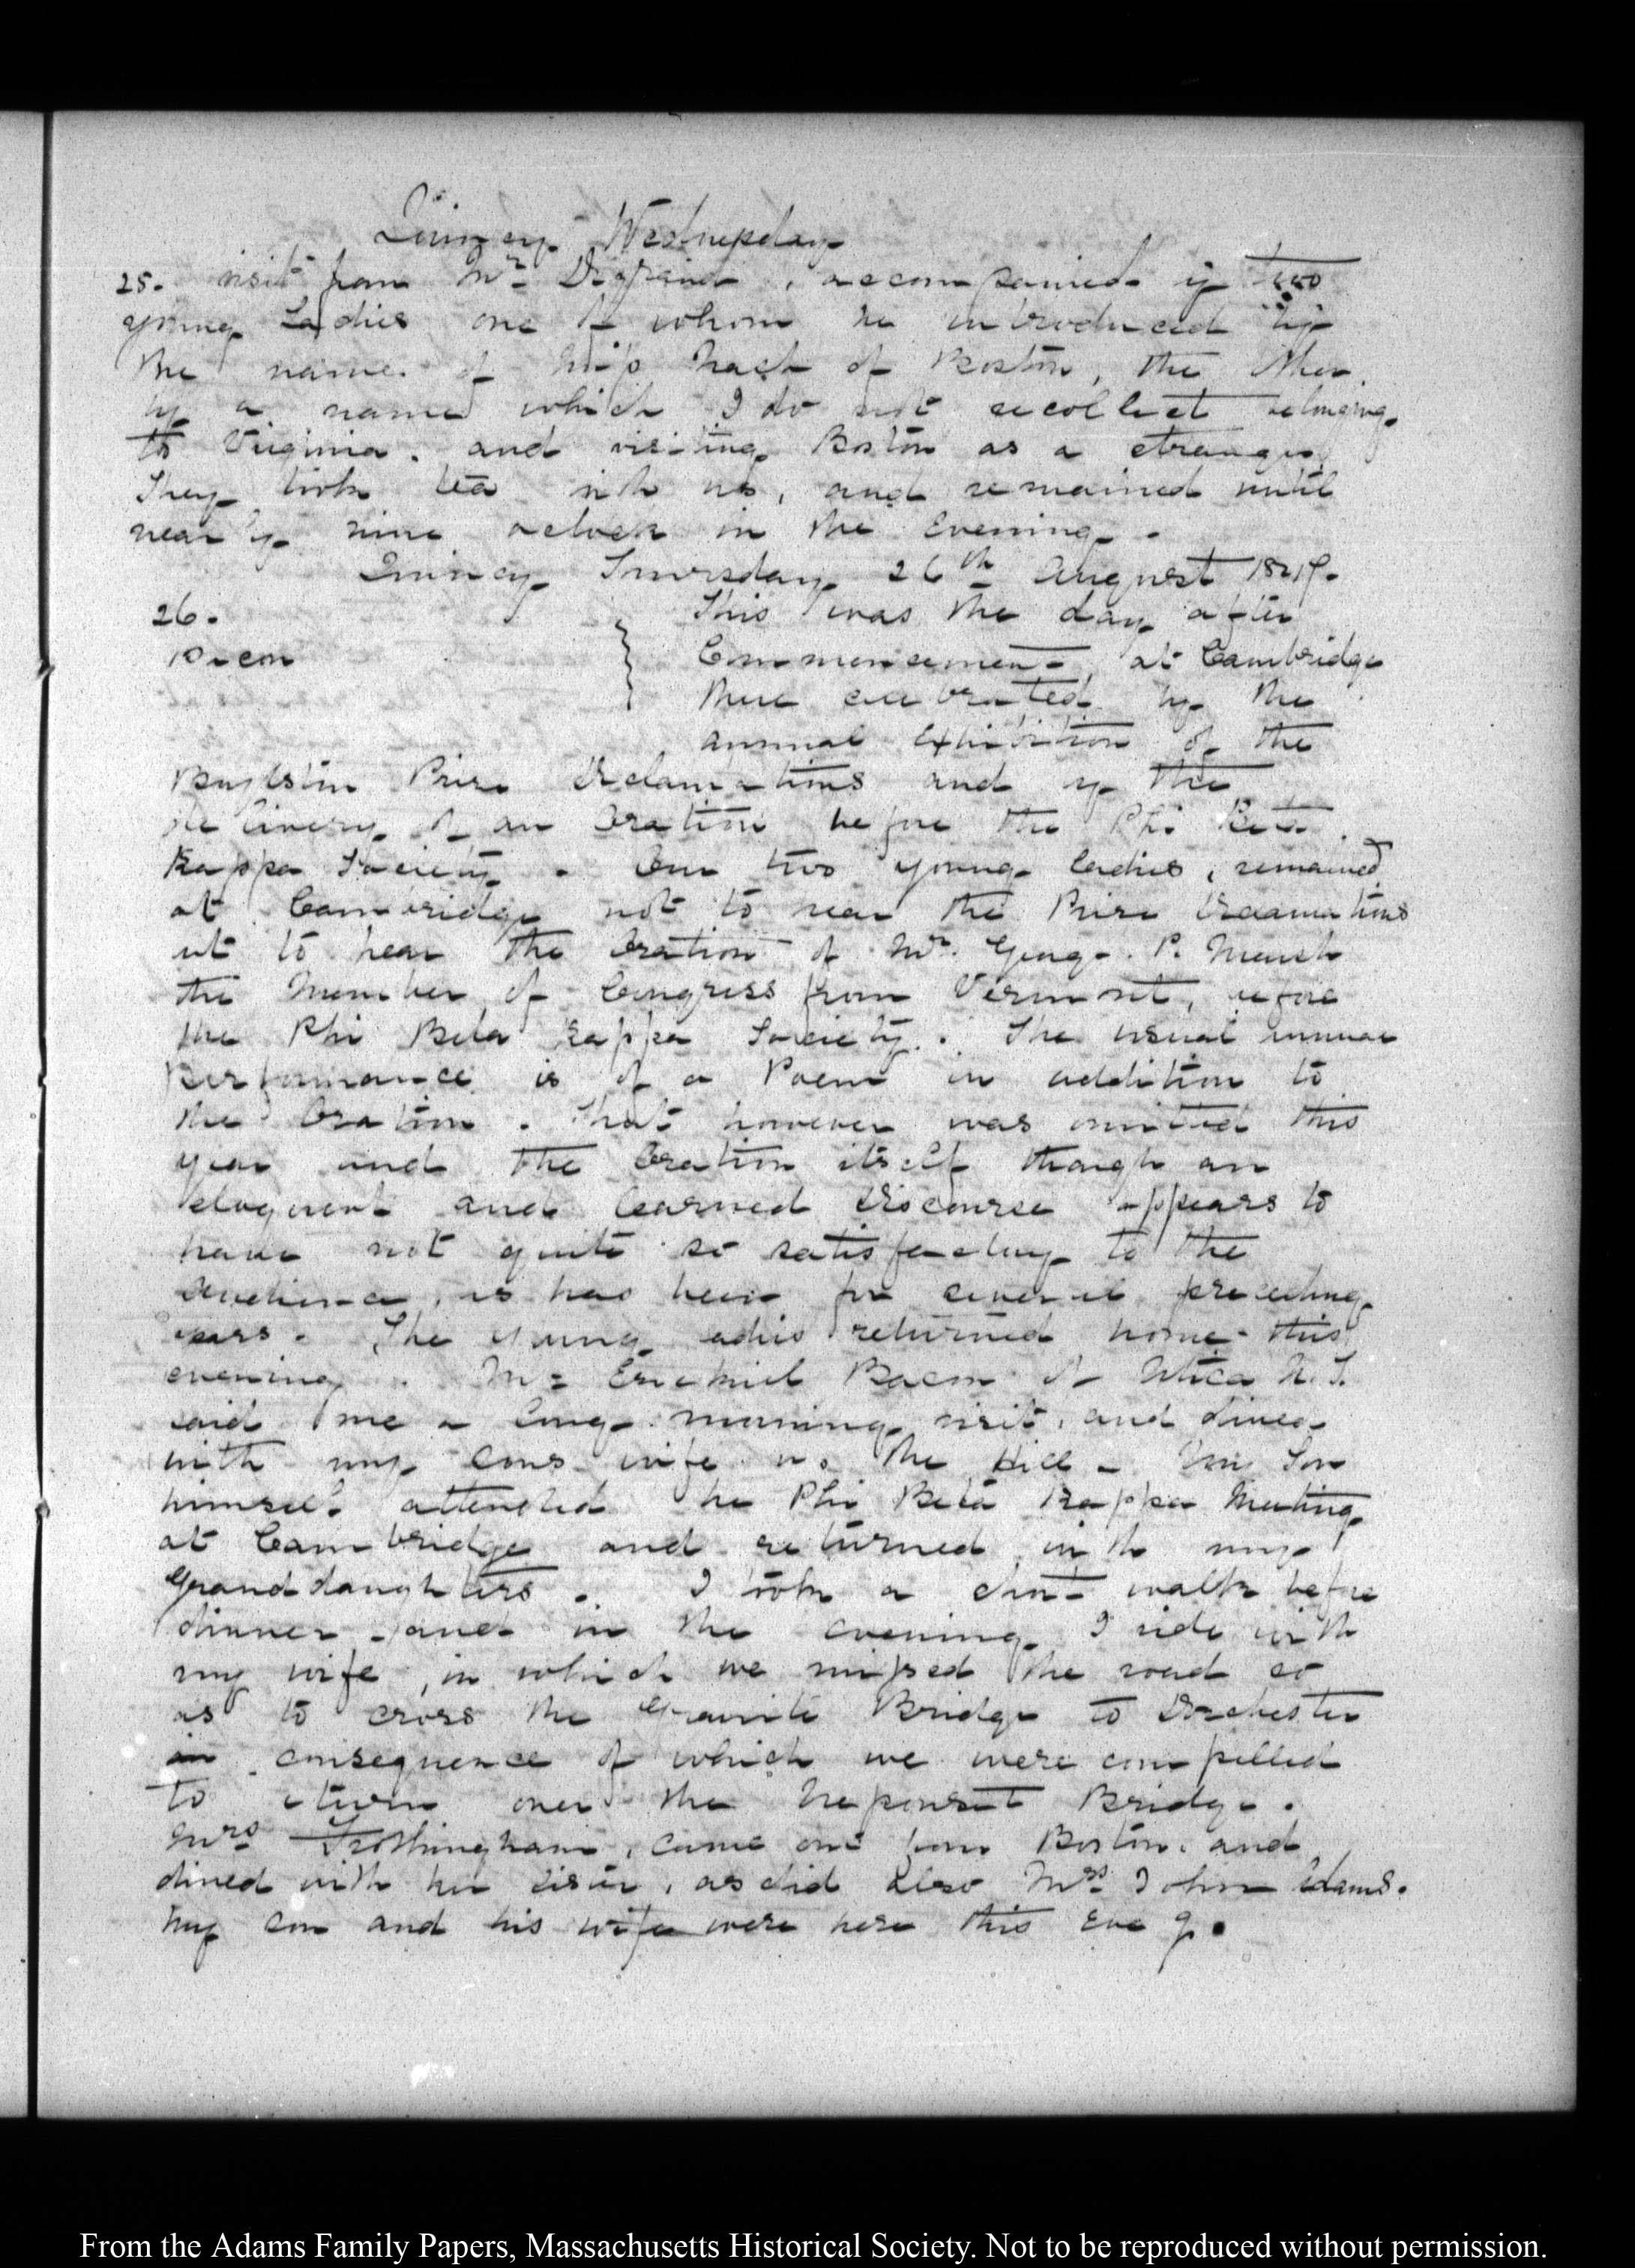 Quincy Wednesday
25. visit from Mr. Degrand, accompanied by two
young Ladies one of whom he introduced by
the name of Miss of Boston, the other
by a name which I do not recollect belonging
to Virginia. and visiting Boston as a stranger
They took tea with us, and remained until
nearly nine oclock in the Evening.
Quincy Thursday 26th August
26. This was the day after
Commencement at Cambridge
there celebrated by the
annual Exhibition of the
Boylston Prize Declamations and by the
delivery of an Oration before the Phi Beta
Kappa Society. Our two young ladies, remained
at Cambridge not to hear the Prize Declamations
but to hear the Oration of Mr. George. P. Marsh
the Member of Congress from Vermont, before
the Phi Beta Kappa Society. The usual annual
performance is of a Poem in addition to
the Oration. That however was omitted this
year and the Oration itself though an
eloquent and learned discourse appears to
have not quite so satisfactory to the
audience, as has been for several preceding
years. The young ladies returned home this
evening. Mr Ezekiel Bacon of Utica N.Y.
paid me a long morning visit, and dined
with my Sons wife on the Hill - My Son
himself attended the Phi Beta Kappa Meeting
at Cambridge and returned with my
Granddaughters. I took a short walk before
dinner and in the evening I ride with
my wife, in which we missed the road so
as to cross the Granite Bridge to Dorchester
in consequence of which we were compelled
to return over the Neponset Bridge.
Mrs Frothingham, came out from Boston. and
dined with her sister, as did also Mrs. John Adams.
My Son and his wife were here this Eve g.
From the Adams Family Papers, Massachusetts Historical Society. Not to be reproduced without permission.